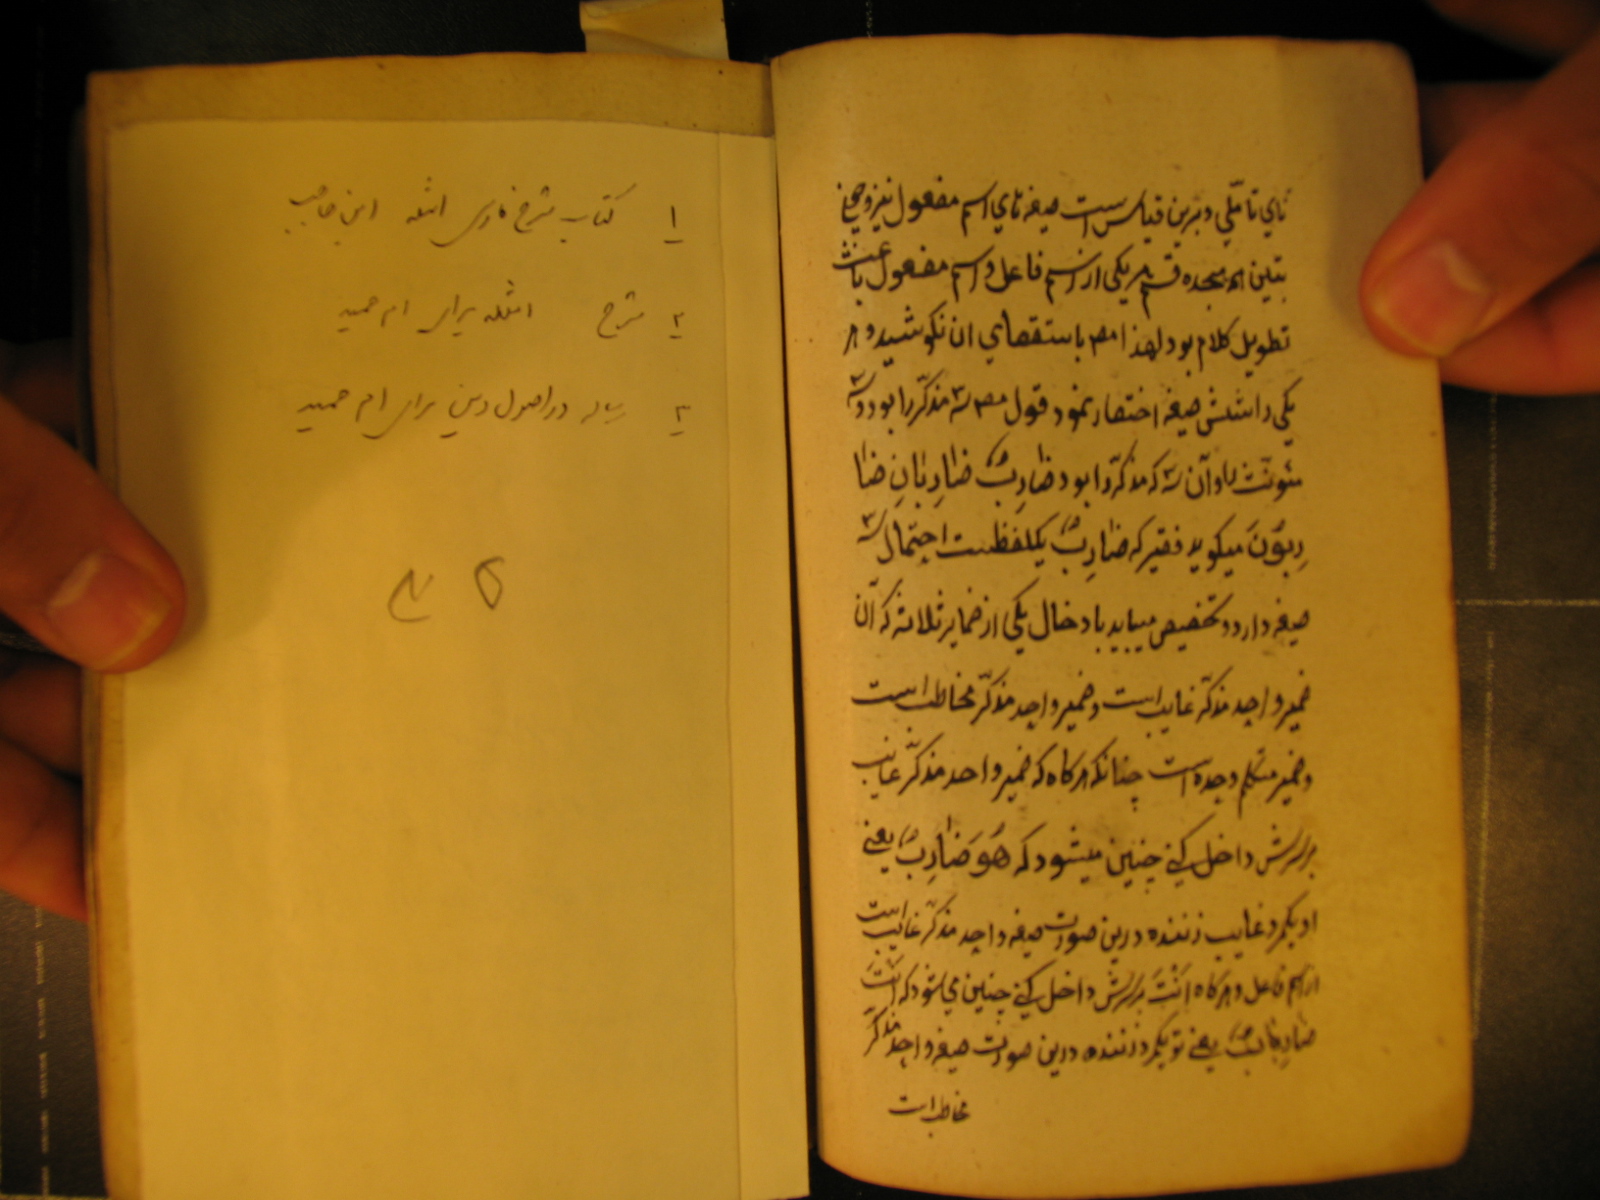 ١ کتاب شرح فارسی امثله ابن حاجب
٢ شرح امثله برای ام حمید
٣ رساله در اصول دین برای ام حمید
نای تاملی و برین قیاس است صیغه نای اسم مفعول نیز و چون
تبیین هجده قسم هر یکی از اسم فاعل و اسم مفعول باعث
تطویل کلام بود لهذا مصـ باستقصای ان نکوشید و هر
یکی را شش صیغه اختصار نمود قول مصـ سه مذکّر را بود و سه
مئونّث را و آن سه که مذکّر را بود ضَارِبٌ ضَارِبَانِ ضَا
رِبُوْنَ میکوید فقیر که ضَارِبٌ یکلفظست احتمال سه
صیغه دارد و تخصیص مییابد بادخال یکی از ضمایر ثلاثه که آن
ضمیر واحد مذکّر غایب است و ضمیر واحد مذکّر مخاطب است
و ضمیر متکلم وحده است چنانکه هرکاه که ضمیر واحد مذکّر غایب
بر سرش داخل کنے چنین میشود که هُوَ ضَارِبٌ یعنے
او یکمرد غایب زننده درین صورت صیغه واحد مذکّر غایب است
از اسم فاعل و هرکاه اَنْتَ بر سرش داخل کنے چنین می شود که اَنْتَ
ضَارِبٌ یعنے تو یکمرد زننده درین صورت صیغه واحد مذکّر
مخاطب است